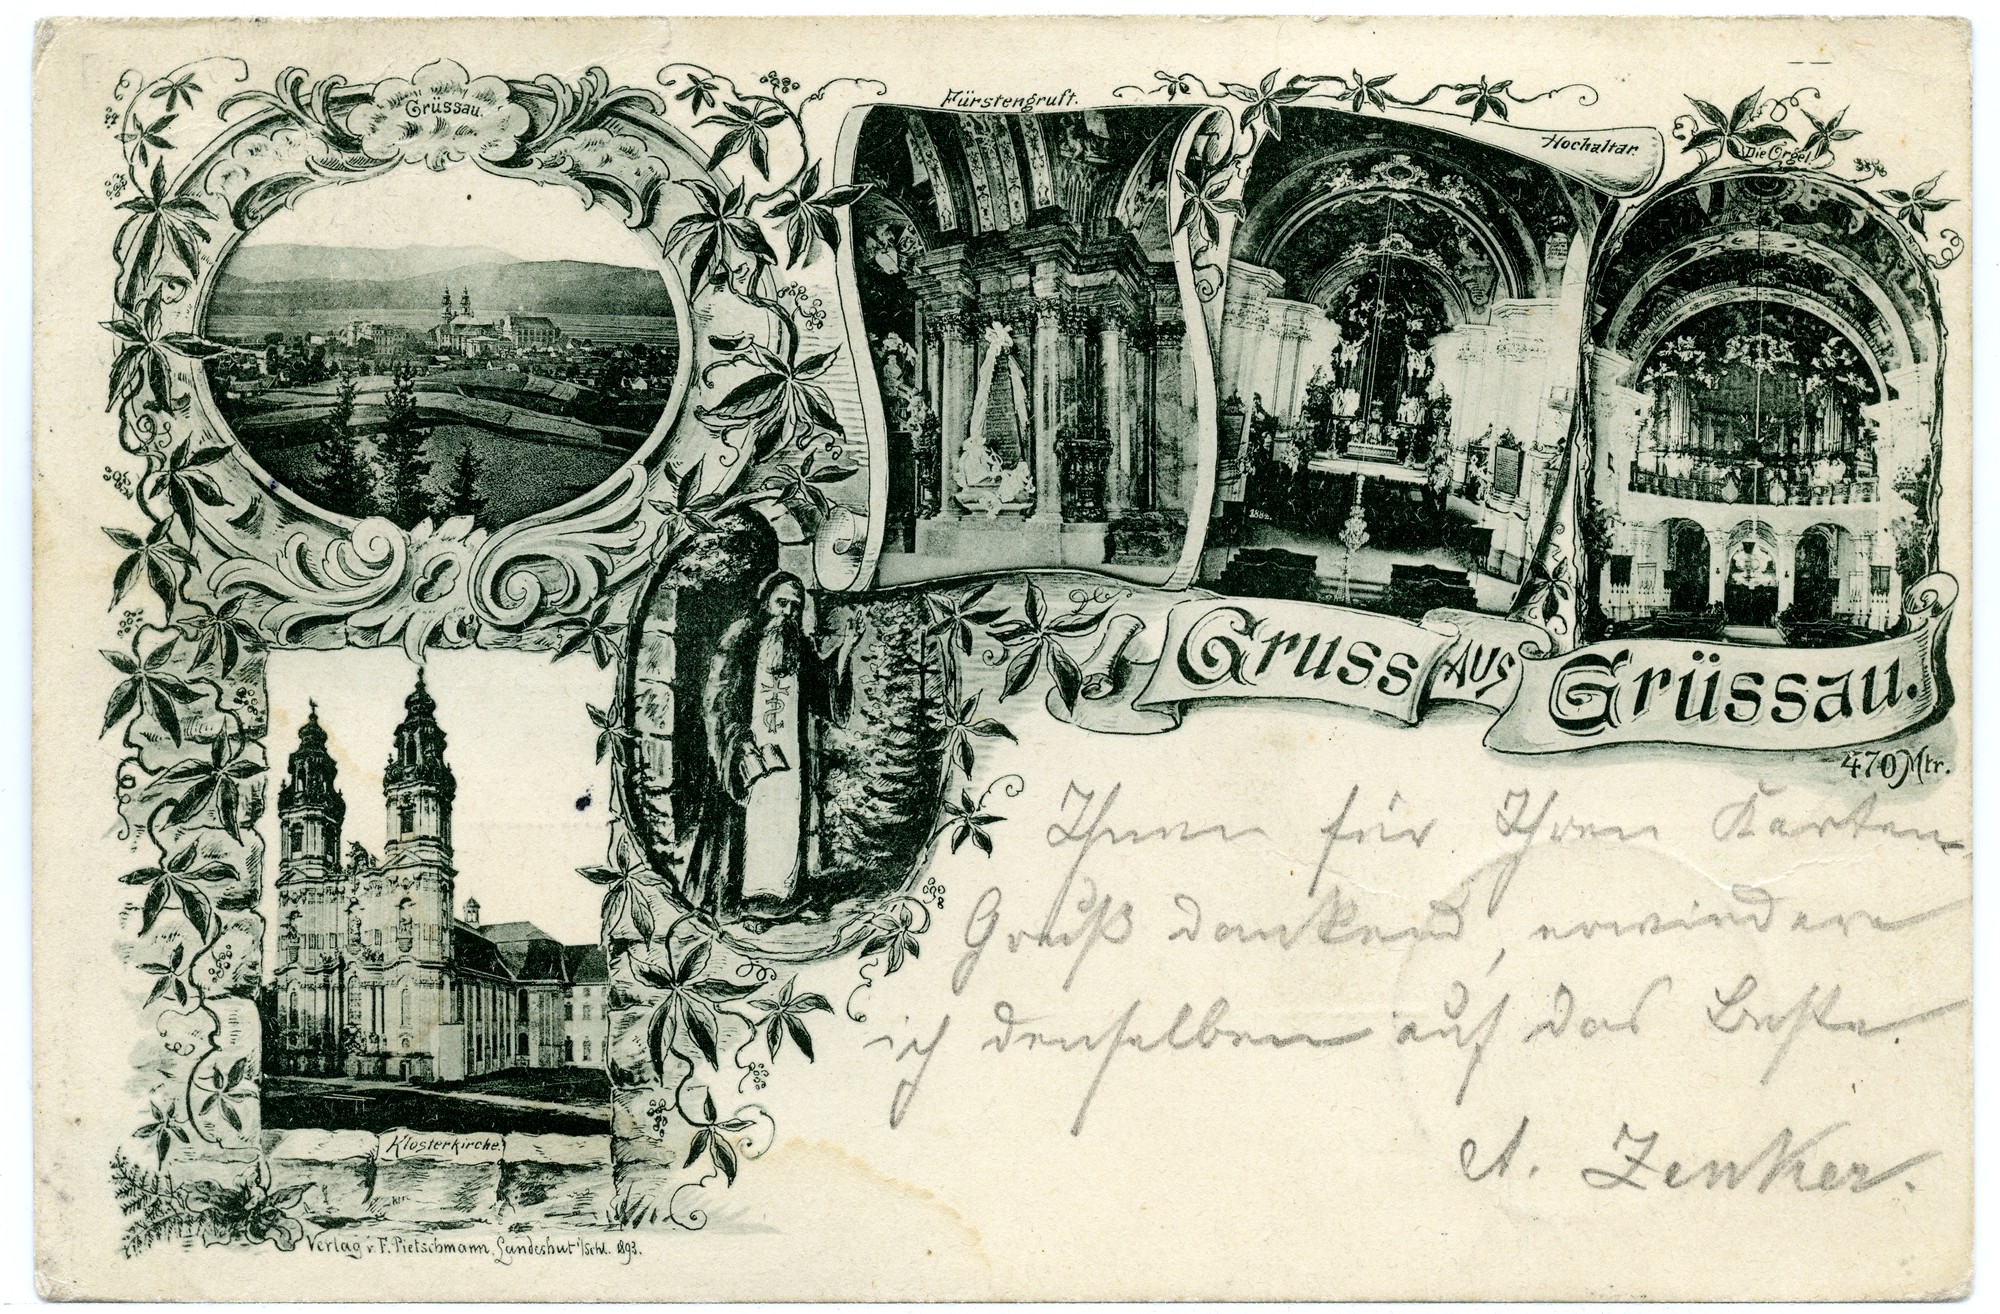 Grüssau.
Fürstengruft.
Hochaltar.
Die Orgel.
Gruss aus Grüssau.
470 Mtr.
Ihnen für Ihren Karten-
Gruß dankend, erwiedere
ich denselben auf das Beste.
A. Zenker.
Klosterkirche.
Verlag v. F. Pietschmann, Landeshut i/Schl. 1893.